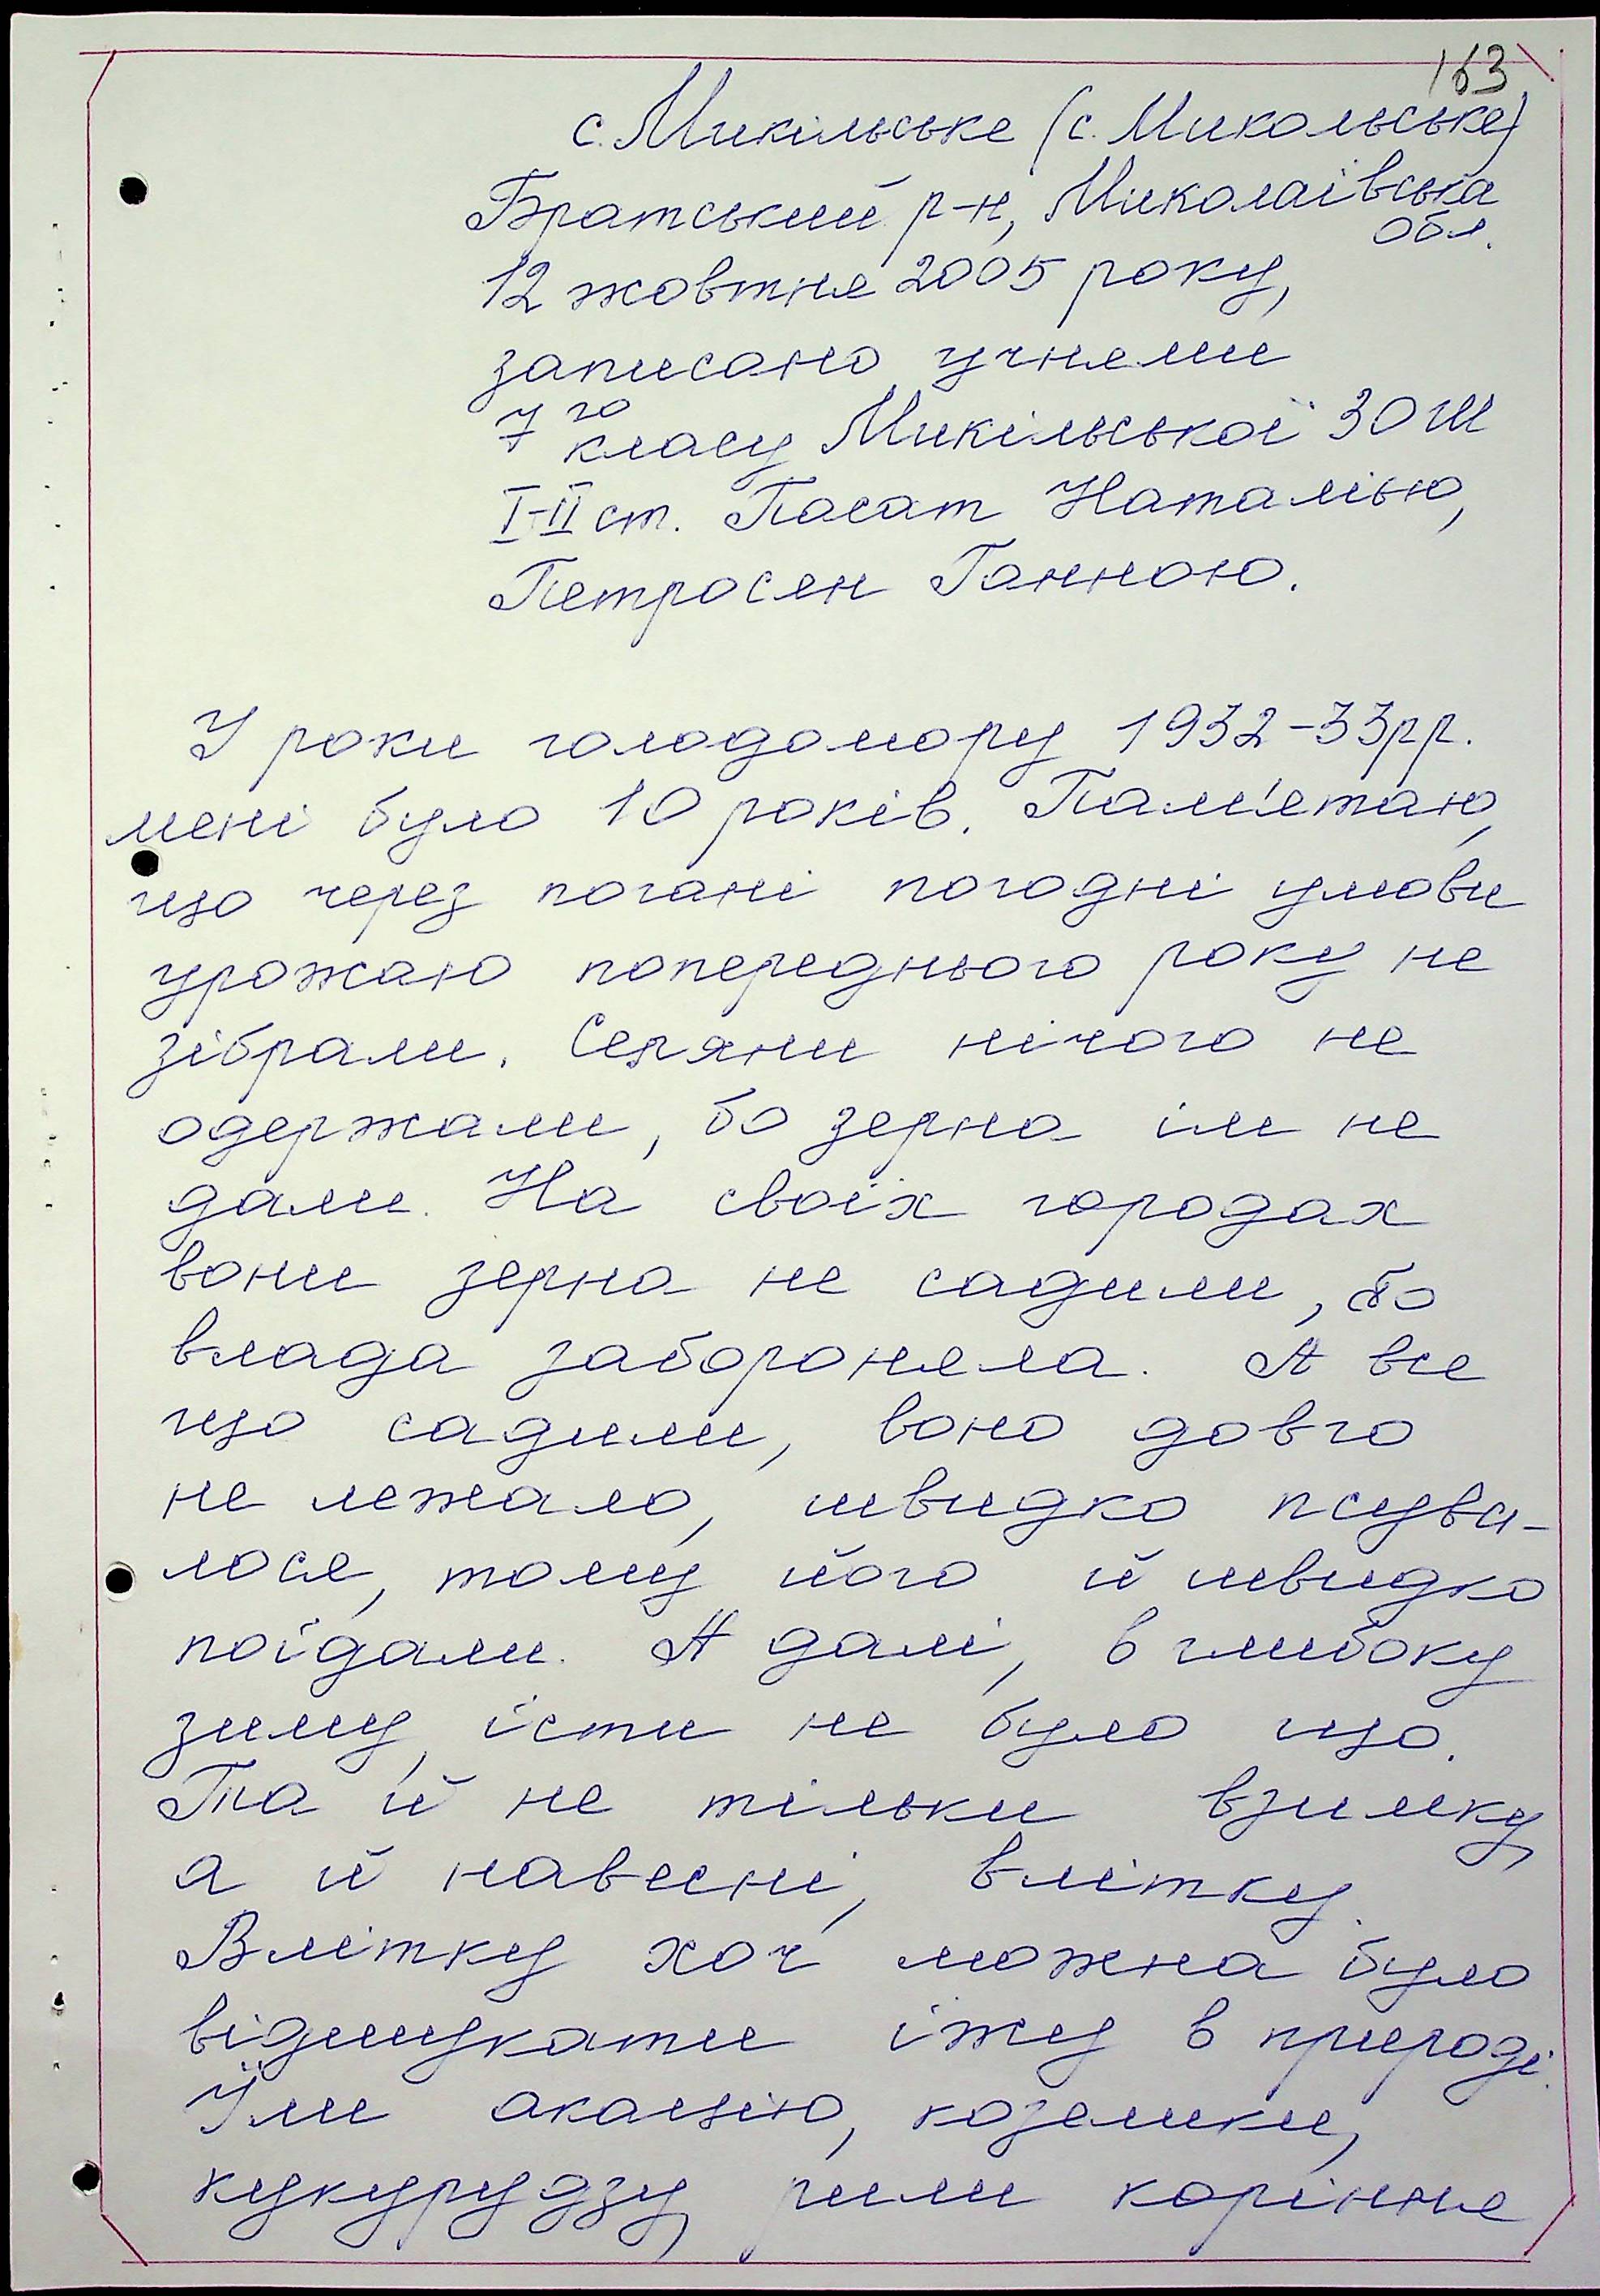 163
с. Микільське (с. Микольське)
Братський р-н, Миколаївська
обл.
12 жовтня 2005 року,
записано учнями
7го класу Микільської ЗОШ
I-II ст. Пасат Наталією,
Петросян Ганною.
У роки голодомору 1932-33рр.
мені було 10 років. Пам'ятаю,
що через погані погодні умови
урожаю попереднього року не
зібрали. Селяни нічого не
одержали, бо зерна їм не
дали. На своїх городах
вони зерна не садили, бо
влада забороняла. А все
що садили, воно довго
не лежало, швидко псува-
лося, тому його й швидко
поїдали. А далі, в глибоку
зиму, їсти не було що.
Та й не тільки взимку,
а й навесні, влітку.
Влітку хоч можна було
відшукати їжу в природі.
Їли акацію, козелики,
кукурудзу, рили коріння